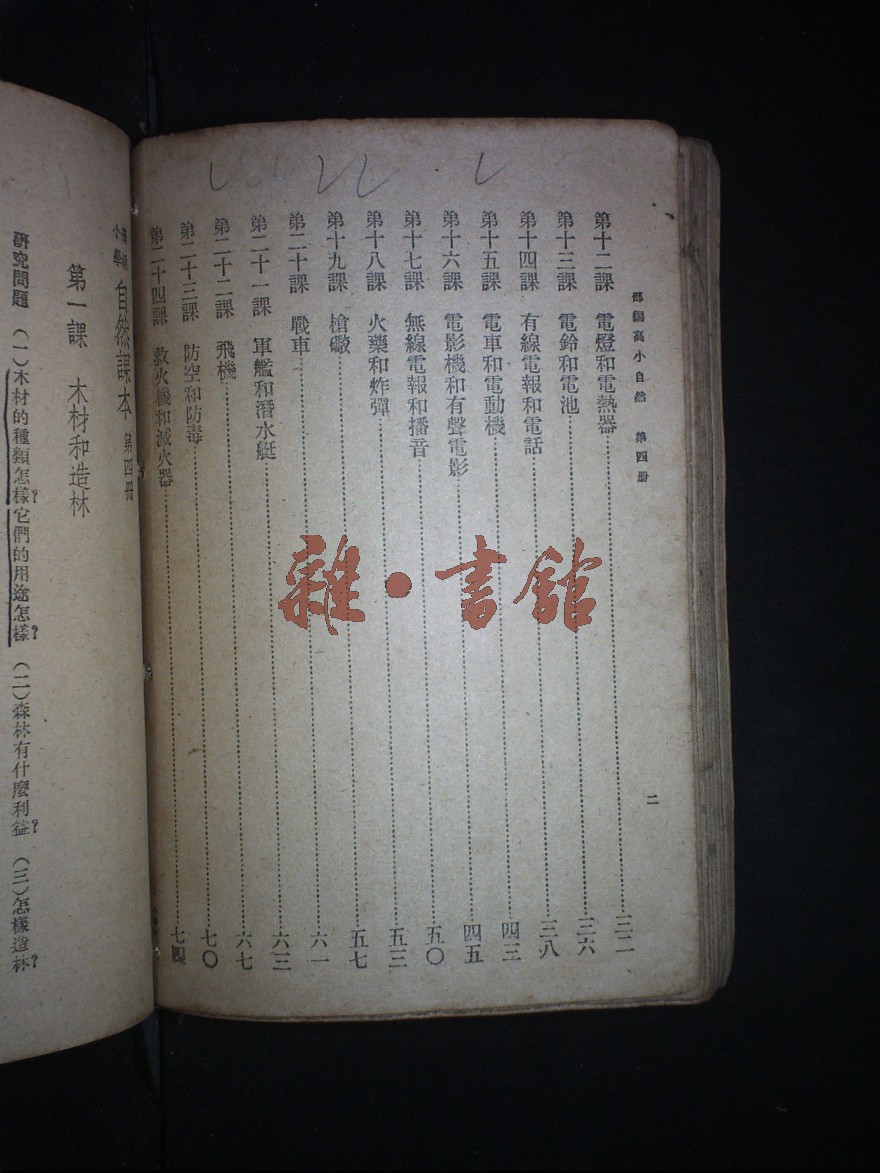 部編高小自然　第四册
二
第十二課　電燈和電熱器……三二
第十三課　電鈴和電池……三六
第十四課　有線電報和電話……三八
第十五課　電車和電動機……四三
第十六課　電影機和有聲電影……四五
第十七課　無線電報和播音……五〇
第十八課　火藥和炸彈……五三
第十九課　槍礮……五七
第二十課　戰車……六一
第二十一課　軍艦和潛水艇……六三
第二十二課　飛機……六七
第二十三課　防空和防毒……七〇
第二十四課　救火機和滅火器……七四
高級小學　自然課本　第四册
第一課　木材和造林
研究問題　（一）木材的種類怎樣？它們的用途怎樣？　（二）森林有什麼利益？　（三）怎樣造林？
雜·書館